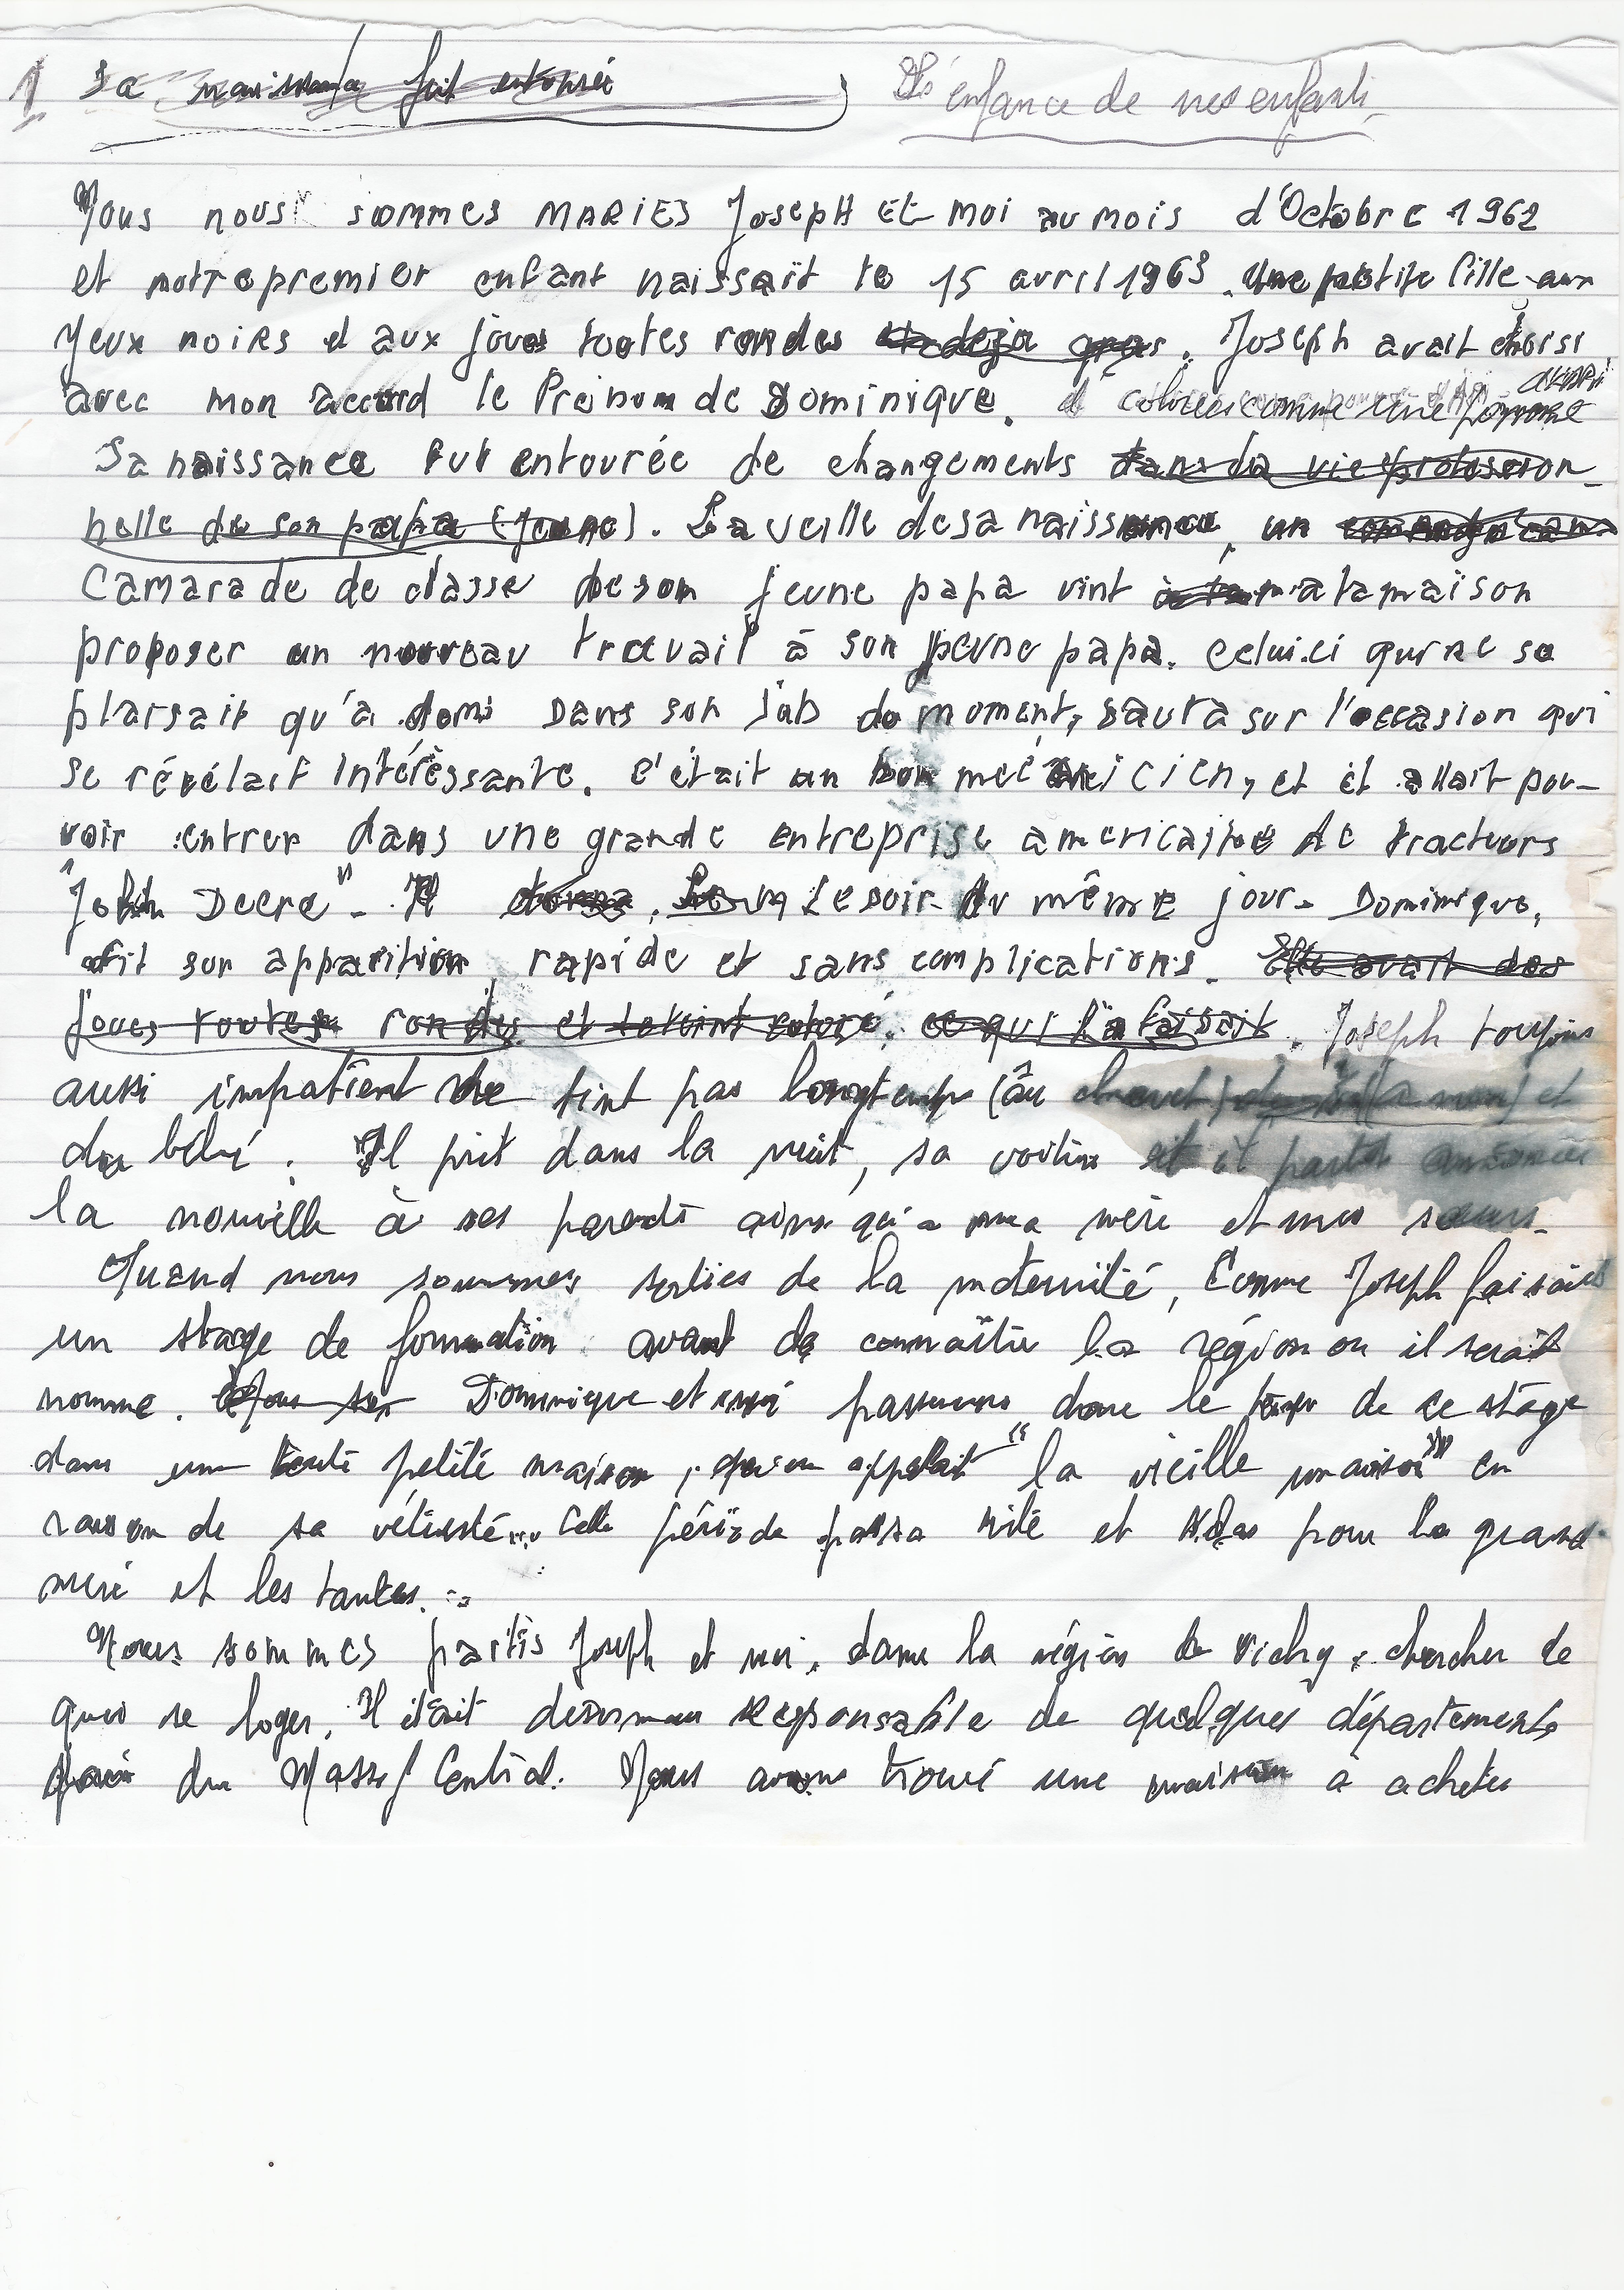 1 Sa naissance fut entourée L'enfance de nos enfants
Nous nous sommes MARIES Joseph Et Moi au mois d'Octobre 1962
et notre premier enfant naissait le 15 avril 1963. Une petite fille aux
yeux noirs et aux joues toutes rondes et deja. Joseph avait choisi
avec mon accord le Prénom de Dominique. et colorées comme une pomme
Sa naissance fut entourée de changements dans la vie profession-
nelle de son papa (jeune). La veille de sa naissance, un
Camarade de classe de son jeune papa vint à la maison
proposer un nouveau travail à son jeune papa. Celui-ci qui ne se
plaisait qu'à demi Dans son job du moment, sauta sur l'occasion qui
se révélait intéressante. C'était un bon mécanicien, et il allait pou-
voir entrer dans une grande entreprise americaine de tracteurs
"John Deere". Il Le soir du même jour. Dominique,
fit son apparition rapide et sans complications. Elle avait des
joues toutes rondes et le teint coloré, ce qui la faisait. Joseph toujours
aussi impatient ne tint pas longtemps (au chevet) et
du bébé. Il prit dans la nuit, sa voiture et il partit annoncer
la nouvelle à ses parents ainsi qu'a ma mère et mes soeurs.
Quand nous sommes sorties de la maternité, Comme Joseph faisait
un stage de formation avant de connaître la région ou il serait
nomme. Dominique et moi passames donc le temps de ce stage
dans une toute petite maison, qu'on appelait "la vieille maison" en
raison de sa vétusté... Cette période passa vite et hélas pour la grand
mère et les tantes...
Nous sommes partis Joseph et moi, dans la région de Vichy chercher de
quoi se loger. Il était desormais responsable de quelques départements
du Massif Central. Nous avons trouvé une maison à acheter